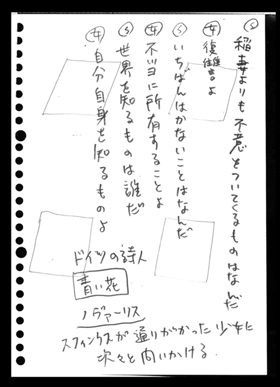 ㋜ 稲妻よりも不意をついてくるものはなんだ
㊛ 復讐よ
㋜ いちばんはかないことはなんだ
㊛ 不当に所有することよ
㋜ 世界を知るものは誰だ
㊛ 自分自身を知るものよ
ドイツの詩人
青い花
ノヴァーリス
スフィンクスが通りがかった少女に
次々と問いかける